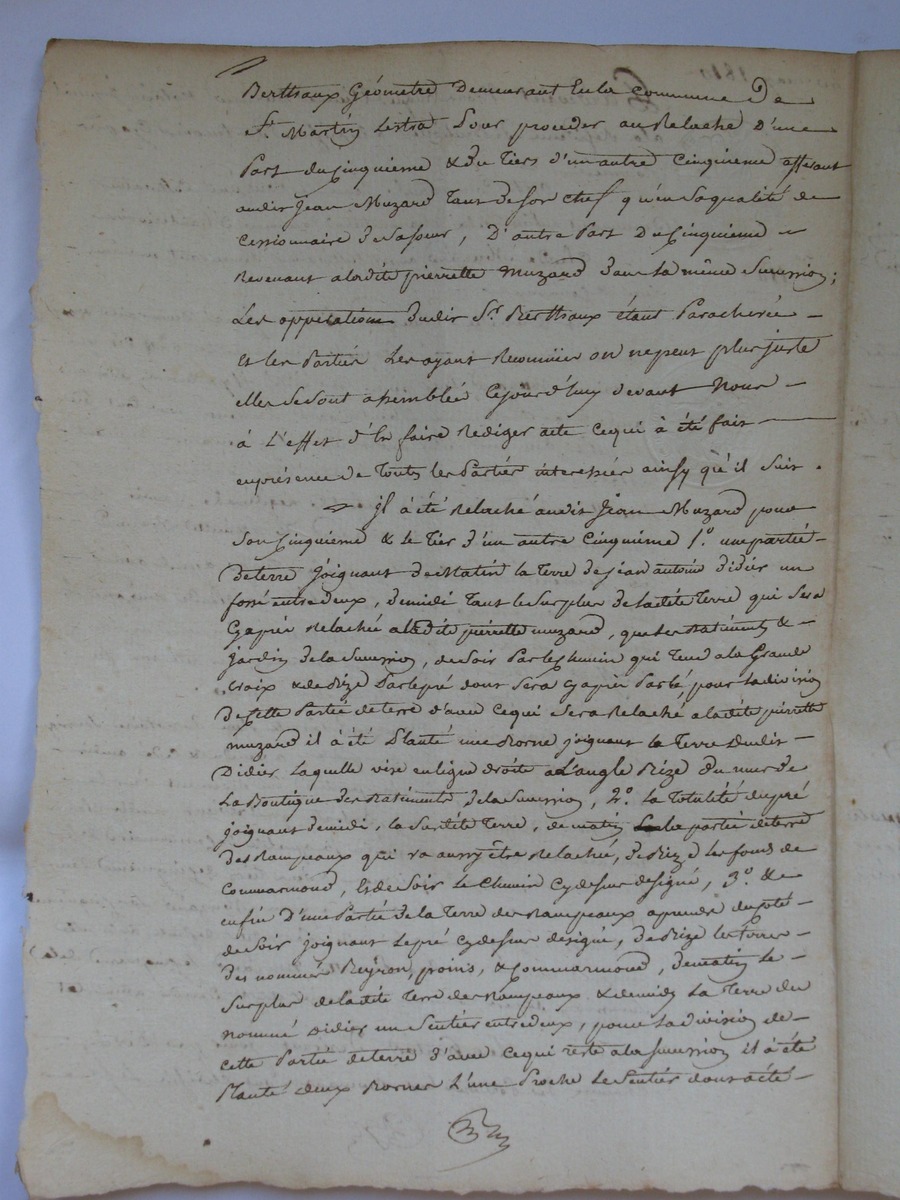 Berthaux Géometre Demeurant En la Commune De
St. Martin Lestra Pour proceder au Relache D'une
Part du Cinquieme & Du Tiers d'un autre Cinquieme afferant
audit Jean Muzard Tant de son Chef qu'en sa qualité de
Cessionnaire de sa sœur, D'autre Part Du Cinquieme
Revenant a ladite pierrette Muzard dans la même Succession;
Les opperations dudit Sr. Berthaux étant Parachevée
Et les Partiés les ayant Reconnües on ne peut plus juste
elles se sont assemblée Cejourd'huy devant Nous
à L'effet d'En faire Rediger acte Cequi à été fait
en présence de Toutes les Partiés interessées ainsy qu'il suit.
Il à été Relaché audit Jean Muzard pour
Son Cinquieme & le Tier d'un autre Cinquieme 1o. une partié
de terre joignant de Matin la Terre de Jean antoine didier un
fossé entre deux, de midi Tant le Surplus de ladite Terre qui Sera
Cy après Relachée a ladite pierrette muzard, que les Batiments &
jardin de la Succession, de Soir Par le Chemin qui Tend a la Grande
Croix & de Bize Par le pré dont sera Cy après Parlé, pour la division
de Cette Partié de terre d'avec Cequi Sera Relaché a ladite pierrette
muzard il à été Planté une Borne joignant la Terre dudit
Didier Laquelle vise en ligne droite a L'angle Bize du mur de
La Boutique des Batiments de la Succession, 2o. la Totalité du pré
joignant de midi, la Susdite Terre, de matin la partié de terre
des Rampeaux qui va aussy être Relachée, de Bize les fonds de
Commarmond, Et de Soir le Chemin Cy dessus designé, 3o. &
enfin D'une Partié de la Terre des Rampeaux aprendre du Coté
de Soir joignant le pré Cy dessus designé, de Bize les Terres
des nommés Reynon, poins, & Commarmond, de matin le
Surplus de ladite Terre des Rampeaux & de midy la Terre du
nommé Didier un Sentier entre deux, pour la division de
cette Partié de terre d'avec Cequi reste a la Succession il à été
Planté deux Bornes L'une Proche le Sentier dont a été